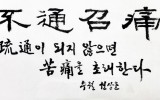 不通召痛
疏通이 되지 않으면
苦痛를 초대한다